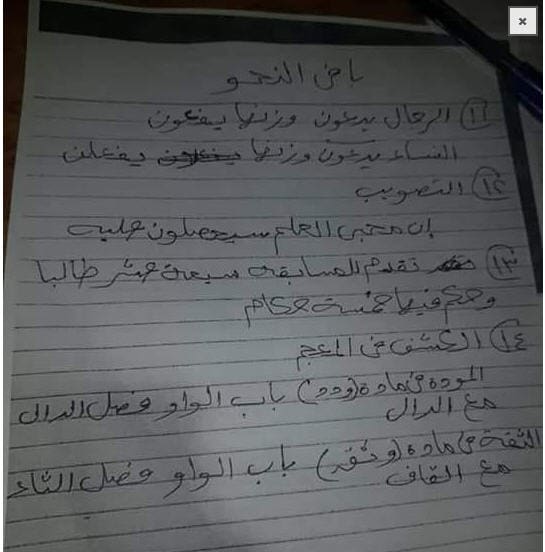 باقى النحو
(١١) الرجال يدعون وزنها يفعون
النساء يدعون وزنها يفعلن
(١٢) التصويب
إن محبى العلم سيحصلون عليه
(١٣) تقدم للمسابقة سبعة عشر طالبا
وحكم فيها خمسة حكام
(١٤) الكشف فى المعجم
المودة فى مادة (ودد) باب الواو فصل الدال
مع الدال
الثقة فى مادة (وثق) باب الواو فصل الثاء
مع القاف